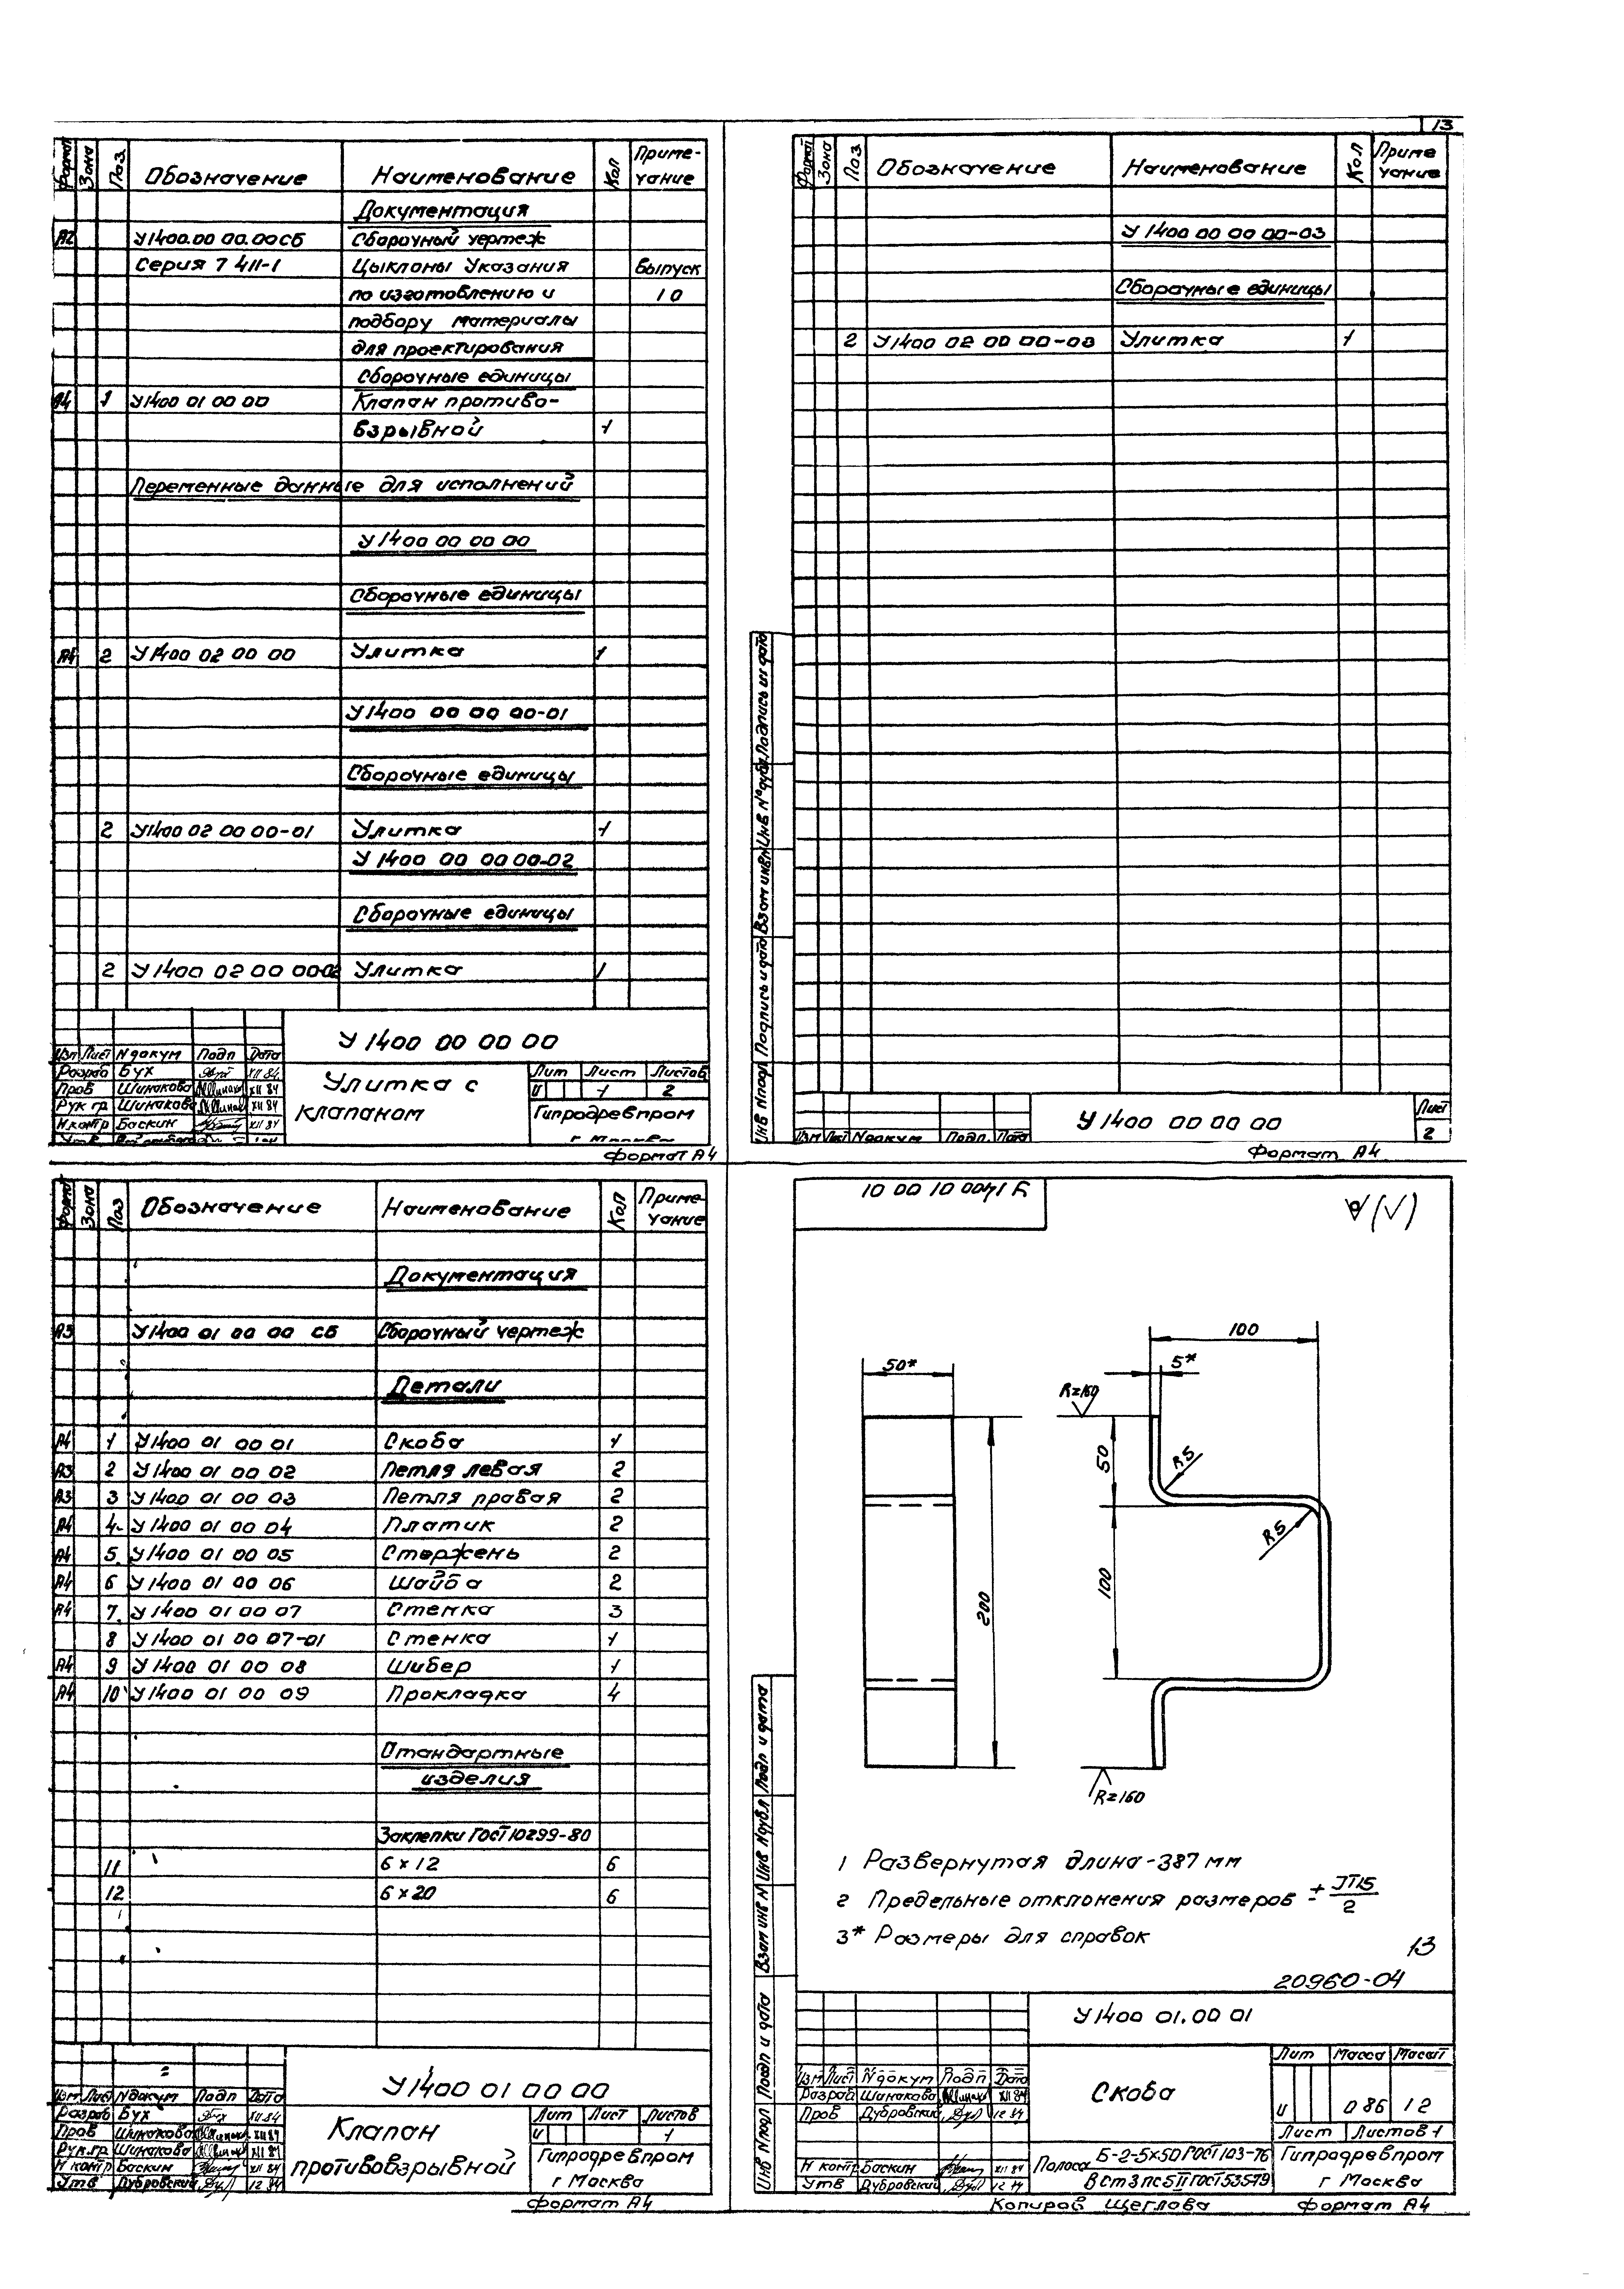 13
Формат Зона Поз. Обозначение Наименование Кол Приме-чание
Документация
А2 У1400.00 00.00СБ Сборочный чертеж
Серия 7 411-1 Циклоны Указания Выпуск
по изготовлению и 10
подбору материалы
для проектирования
Сборочные единицы
А4 1 У1400 01 00 00 Клапан противо-
взрывной 1
Переменные данные для исполнений
У1400 00 00 00
Сборочные единицы
А4 2 У1400 02 00 00 Улитка 1
У1400 00 00 00-01
Сборочные единицы
2 У1400 02 00 00-01 Улитка 1
У1400 00 00 00-02
Сборочные единицы
2 У1400 02 00 00-02 Улитка 1
У1400 00 00 00
Изм Лист N докум Подп Дата
Разраб Бух XII 84
Пров Шинакова XII 84
Рук гр Шинакова XII 84
Н.контр Баскин XII 84
Утв
Улитка с
клапаном
Лит Лист Листов
И 1 2
Гипродревпром
г Москва
Формат А4
Формат Зона Поз Обозначение Наименование Кол Приме чание
У1400 00 00 00-03
Сборочные единицы
2 У1400 02 00 00-03 Улитка 1
Инв Nподл Подпись и дата Взам инв N Инв N°дубл Подпись и дата
Изм Лист N докум Подп. Дата
У1400 00 00 00
Лист
2
Формат А4
Формат Зона Поз Обозначение Наименование Кол Приме-чание
Документация
А3 У1400 01 00 00 СБ Сборочный чертеж
Детали
А4 1 У1400 01 00 01 Скоба 1
А3 2 У1400 01 00 02 Петля левая 2
А3 3 У1400 01 00 03 Петля правая 2
А4 4 У1400 01 00 04 Платик 2
А4 5 У1400 01 00 05 Стержень 2
А4 6 У1400 01 00 06 Шайба 2
А4 7 У1400 01 00 07 Стенка 3
8 У1400 01 00 07-01 Стенка 1
А4 9 У1400 01 00 08 Шибер 1
А4 10 У1400 01 00 09 Прокладка 4
Стандартные
изделия
Заклепки ГОСТ 10299-80
11 6×12 6
12 6×20 6
У1400 01 00 00
Изм Лист N докум Подп Дата
Разраб Бух XII.84
Пров Шинакова XII 84
Рук.гр Шинакова XII 84
Н контр Баскин XII 84
Утв Дубровский 12 84
Клапан
противовзрывной
Лит Лист Листов
И 1
Гипродревпром
г Москва
Формат А4
У1400 01 00 01
√(√)
100
50*
5*
Rz160
50
R5
R5
200
100
Rz160
1 Развернутая длина-387 мм
2 Предельные отклонения размеров ± IT15/2
3* Размеры для справок
13
20960-04
Инв Nподл Подп и дата Взам инв N Инв Nдубл Подп и дата
У1400 01.00 01
Изм Лист N докум Подп Дата
Разраб Шинакова XII 84
Пров Дубровский 12 84
Н контр Баскин XII 84
Утв Дубровский 12 84
Скоба
Лит Масса Масшт
И 0 86 1 2
Лист Листов 1
Полоса Б-2-5×50 ГОСТ 103-76
ВСт3пс5II ГОСТ 535-79
Гипродревпром
г Москва
Копировал Щеглова Формат А4